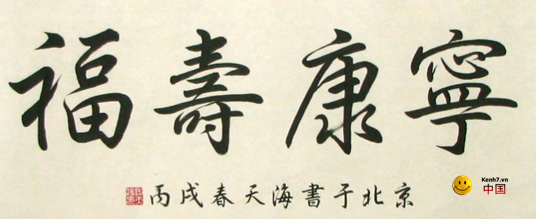 福壽康寧
丙戌春天海書于北京
Kenh7.vn
中国